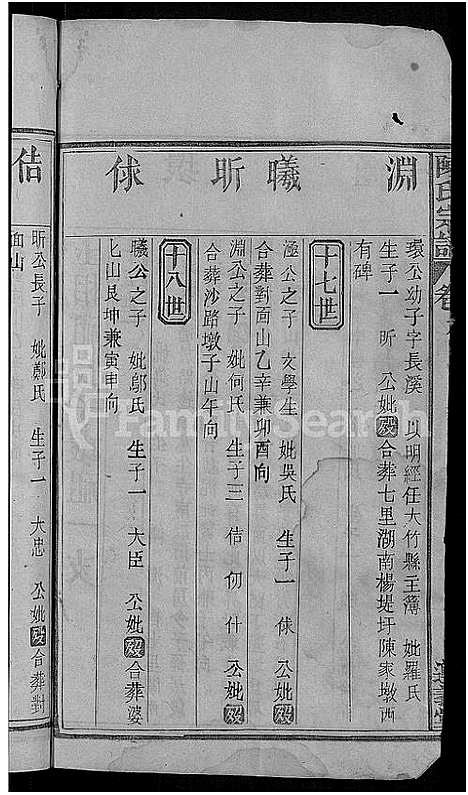 陳氏宗譜 卷
淵
環公幼子字長溪 以明經任大竹縣主簿 妣羅氏
生子一 昕 公妣歿合葬七里湖南楊堤圩陳家墩西
有碑
十七世
曦
溎公之子 文學生 妣吳氏 生子一 俅 公妣歿
合葬對面山乙辛兼卯酉向
昕
淵公之子 妣何氏 生子三 佶 仞 什 公妣歿
合葬沙路墩子山午向
十八世
俅
曦公之子 妣鄔氏 生子一 大臣 公妣歿合葬婆
匕山艮坤兼寅申向
佶
昕公長子 妣鄭氏 生子一 大忠 公妣歿合葬對
面山
FamilySearch